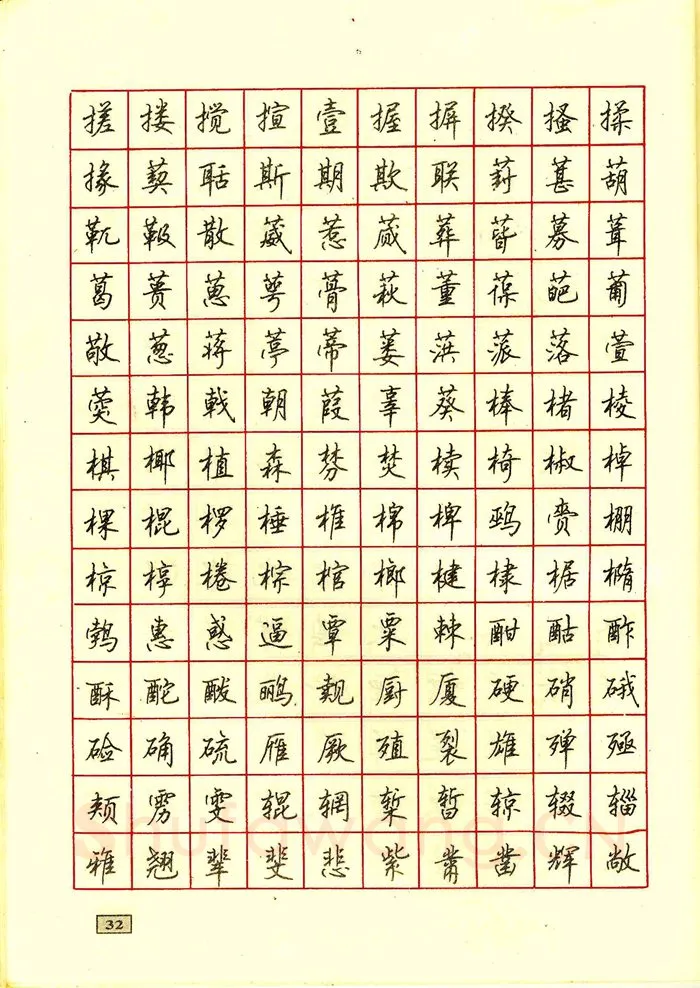 搓 搂 搅 揎 壹 握 摒 揆 搔 揉
掾 葜 聒 斯 期 欺 联 葑 葚 葫
靰 靸 散 葳 惹 蒇 葬 蒈 募 葺
葛 蒉 葸 萼 蓇 萩 董 葆 葩 葡
敬 葱 蒋 葶 蒂 蒌 蓱 蒎 落 萱
葖 韩 戟 朝 葭 辜 葵 棒 楮 棱
棋 椰 植 森 棼 焚 椟 椅 椒 棹
棵 棍 椤 棰 椎 棉 椑 鹀 赍 棚
椋 椁 棬 棕 棺 榔 楗 棣 椐 椭
鹁 惠 惑 逼 覃 粟 棘 酣 酤 酢
酥 酡 酦 鹂 觌 厨 厦 硬 硝 硪
硷 确 硫 雁 厥 殖 裂 雄 殚 殛
颊 雳 雯 辊 辋 椠 暂 辌 辍 辎
雅 翘 辈 斐 悲 紫 黹 凿 辉 敞
32
Shufawang.CN